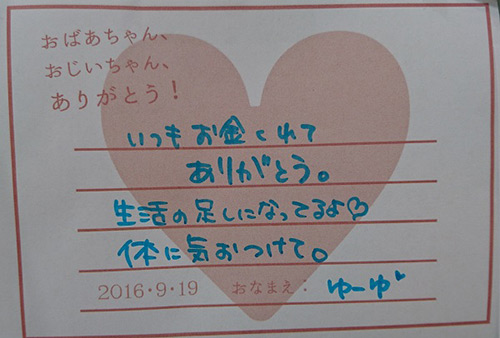 おばあちゃん、
おじいちゃん、
ありがとう！
いつもお金くれて
ありがとう。
生活の足しになってるよ♡
体に気おつけて。
2016・9・19 おなまえ： ゆーゆ